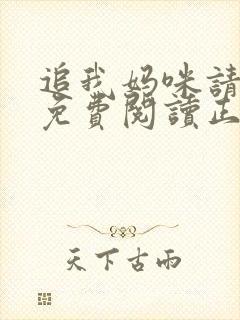 追我妈咪請
免費閱讀正
天下古雨